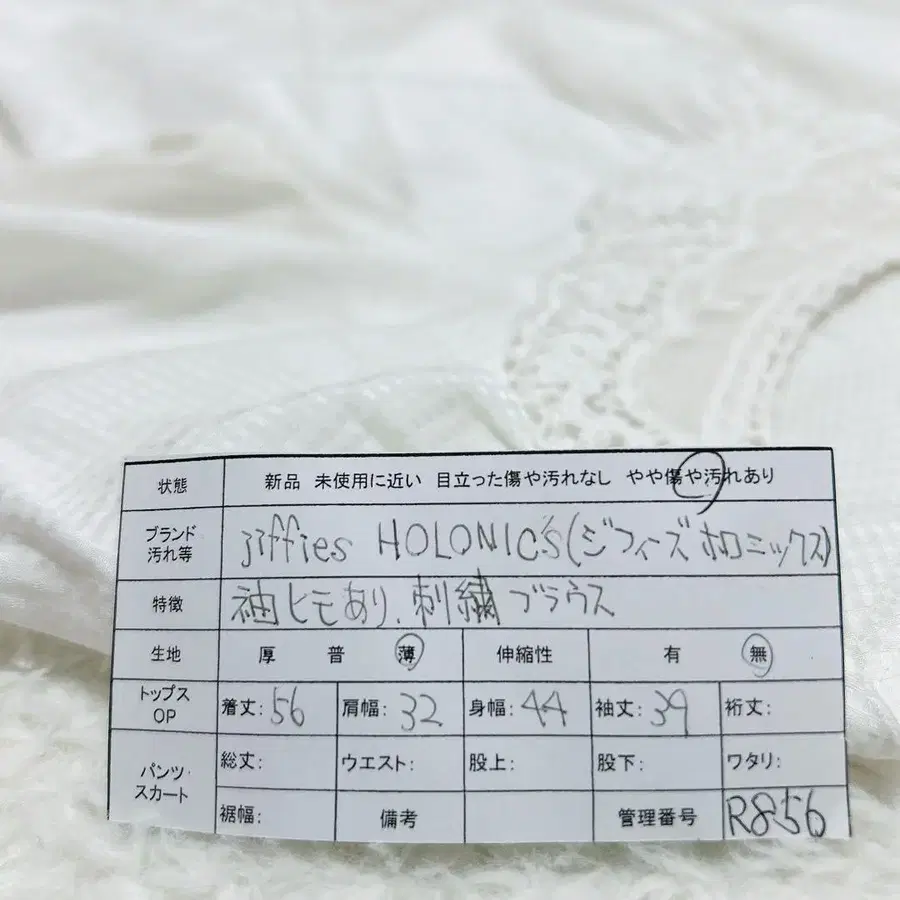 状態 新品 未使用に近い 目立った傷や汚れなし やや傷や汚れあり
ブランド 汚れ等 jiffies HOLONIC'S(ジフィーズ ホロミックス)
特徴 袖ヒモあり、刺繍ブラウス
生地 厚 普 薄 伸縮性 有 無
トップス OP 着丈:56 肩幅:32 身幅:44 袖丈:39 裄丈:
パンツ・スカート 総丈: ウエスト: 股上: 股下: ワタリ:
裾幅: 備考 管理番号 R856